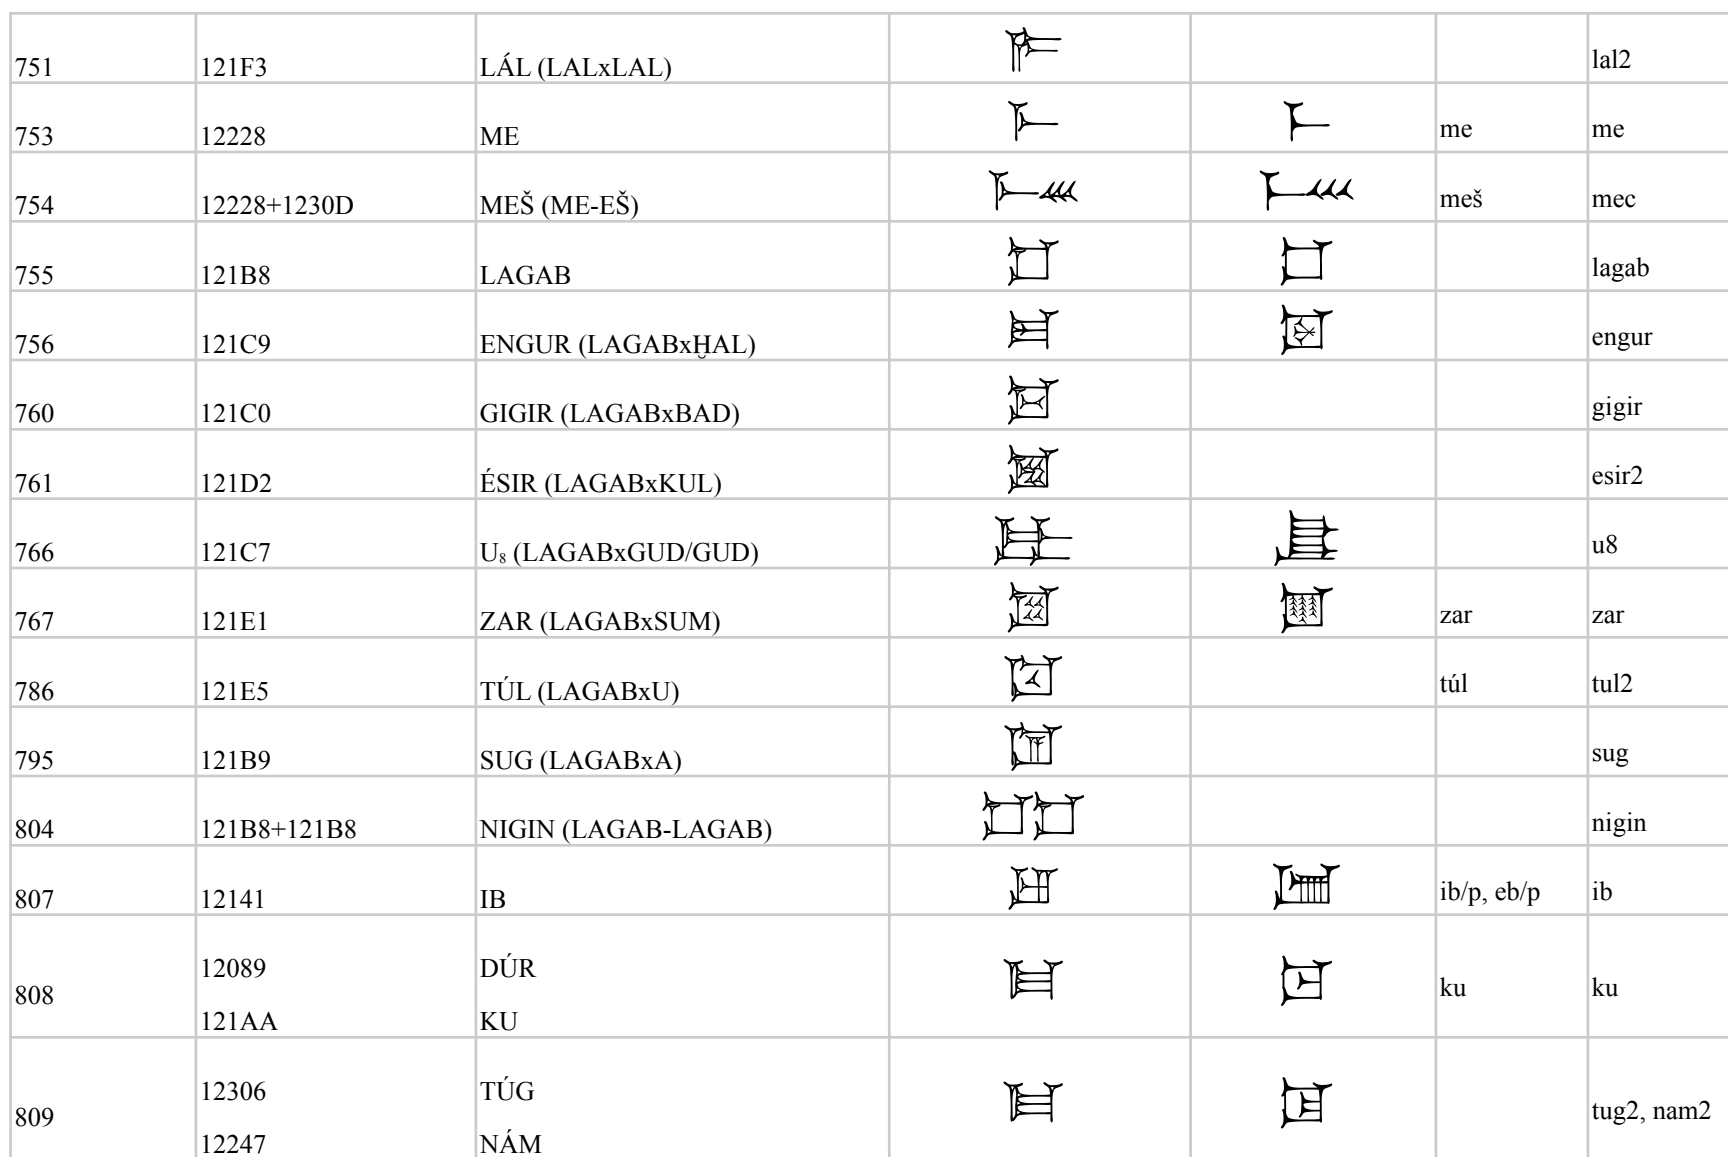 751 121F3 LÁL (LALxLAL) 𒇳 lal2
753 12228 ME 𒈨 𒈨 me me
754 12228+1230D MEŠ (ME-EŠ) 𒈨𒌍 𒈨𒌍 meš mec
755 121B8 LAGAB 𒆸 𒆸 lagab
756 121C9 ENGUR (LAGABxḪAL) 𒇉 𒇉 engur
760 121C0 GIGIR (LAGABxBAD) 𒇀 gigir
761 121D2 ÉSIR (LAGABxKUL) 𒇒 esir2
766 121C7 U₈ (LAGABxGUD/GUD) 𒇇 𒇇 u8
767 121E1 ZAR (LAGABxSUM) 𒇡 𒇡 zar zar
786 121E5 TÚL (LAGABxU) 𒇥 túl tul2
795 121B9 SUG (LAGABxA) 𒆹 sug
804 121B8+121B8 NIGIN (LAGAB-LAGAB) 𒆸𒆸 nigin
807 12141 IB 𒅁 𒅁 ib/p, eb/p ib
12089 DÚR
808 𒆪 𒆪 ku ku
121AA KU
12306 TÚG
809 𒌆 𒌆 tug2, nam2
12247 NÁM